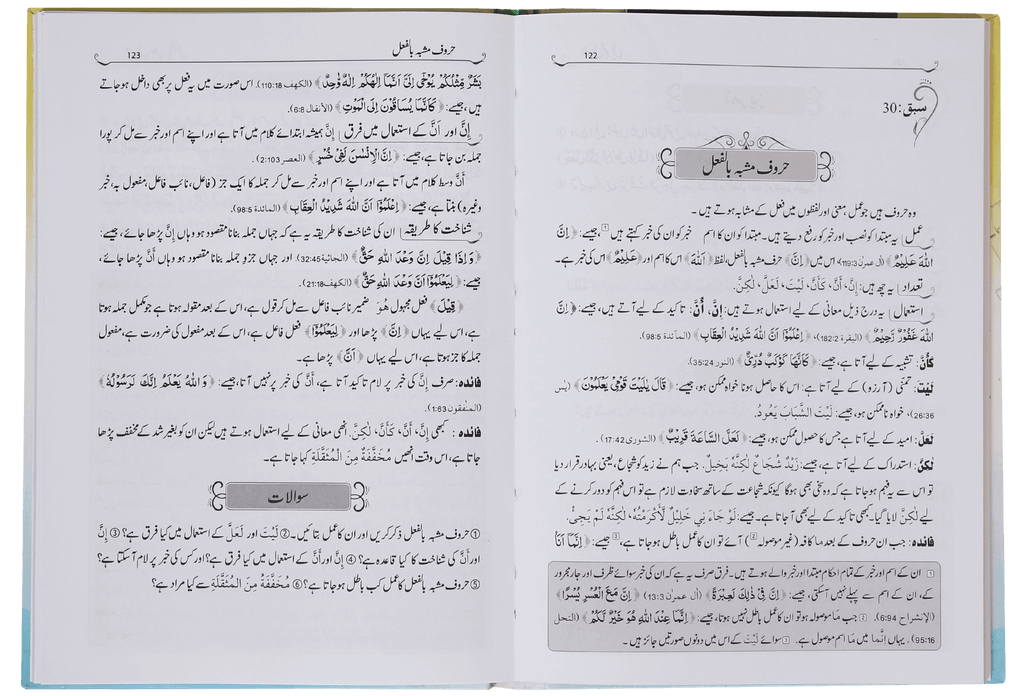 122
سبق:30
حروف مشبہ بالفعل
وہ حروف ہیں جو عمل، معنی اور لفظوں میں فعل کے مشابہ ہوتے ہیں۔
عمل یہ مبتدا کو نصب اور خبر کو رفع دیتے ہیں۔ مبتدا کو ان کا اسم خبر کو ان کی خبر کہتے ہیں 1 جیسے: ﴿إِنَّ
اللّٰهَ عَلِيْمٌ﴾ (آل عمرٰن 119:3) اس میں ﴿إِنَّ﴾ حرف مشبہ بالفعل، لفظ ﴿اللّٰهَ﴾ اس کا اسم اور ﴿عَلِيْمٌ﴾ اس کی خبر ہے۔
تعداد یہ چھ ہیں: إِنَّ، أَنَّ، كَأَنَّ، لَيْتَ، لَعَلَّ، لٰكِنَّ.
استعمال یہ درج ذیل معانی کے لیے استعمال ہوتے ہیں: إِنَّ، أَنَّ: تاکید کے لیے آتے ہیں، جیسے: ﴿إِنَّ
اللّٰهَ غَفُوْرٌ رَّحِيْمٌ﴾ (البقرة 182:2)، ﴿اِعْلَمُوْٓا اَنَّ اللّٰهَ شَدِيْدُ الْعِقَابِ﴾ (المآئدة 98:5)
كَأَنَّ: تشبیہ کے لیے آتا ہے، جیسے: ﴿كَاَنَّهَا كَوْكَبٌ دُرِّيٌّ﴾ (النور 35:24).
لَيْتَ: تمنّی (آرزو) کے لیے آتا ہے: اس کا حاصل ہونا خواہ ممکن ہو، جیسے: ﴿قَالَ يٰلَيْتَ قَوْمِيْ يَعْلَمُوْنَ﴾ (يٰس
26:36)، خواہ ناممکن ہو، جیسے: لَيْتَ الشَّبَابَ يَعُوْدُ.
لَعَلَّ: امید کے لیے آتا ہے جس کا حصول ممکن ہو، جیسے: ﴿لَعَلَّ السَّاعَةَ قَرِيْبٌ﴾ (الشورى 17:42).
لٰكِنَّ: استدراک کے لیے آتا ہے، جیسے: زَيْدٌ شُجَاعٌ لٰكِنَّهُ بَخِيْلٌ. جب ہم نے زید کو شجاع، یعنی بہادر قرار دیا
تو اس سے یہ فہم ہو جاتا ہے کہ وہ سخی بھی ہوگا کیونکہ شجاعت کے ساتھ سخاوت لازم ہے تو اس فہم کو دور کرنے کے
لیے لٰكِنَّ لایا گیا۔ کبھی تاکید کے لیے بھی آ جاتا ہے۔ جیسے: لَوْ جَاءَنِي خَلِيْلٌ لَأَكْرَمْتُهُ، لٰكِنَّهُ لَمْ يَجِئْ.
فائدہ: جب ان حروف کے بعد ما کافہ (غیر موصولہ 2) آئے تو ان کا عمل باطل ہو جاتا ہے، 3 جیسے: ﴿اِنَّمَآ اَنَا
1 ان کے اسم اور خبر کے تمام احکام مبتدا اور خبر والے ہوتے ہیں۔ فرق صرف یہ ہے کہ ان کی خبر سوائے ظرف اور جار مجرور
کے، ان کے اسم سے پہلے نہیں آ سکتی، جیسے: ﴿اِنَّ فِيْ ذٰلِكَ لَعِبْرَةً﴾ (آل عمرٰن 13:3) ﴿اِنَّ مَعَ الْعُسْرِ يُسْرًا﴾
(الإنشراح 6:94). 2 جب ما موصولہ ہو تو ان کا عمل باطل نہیں ہوتا، جیسے: ﴿اِنَّمَا عِنْدَ اللّٰهِ هُوَ خَيْرٌ لَّكُمْ﴾ (النحل
95:16). یہاں إِنَّمَا میں مَا اسم موصول ہے۔ 3 سوائے لَيْتَ کے اس میں دونوں صورتیں جائز ہیں۔
حروف مشبہ بالفعل 123
بَشَرٌ مِّثْلُكُمْ يُوْحٰٓى اِلَيَّ اَنَّمَآ اِلٰهُكُمْ اِلٰهٌ وَّاحِدٌ﴾ (الكهف 110:18). اس صورت میں یہ فعل پر بھی داخل ہو جاتے
ہیں، جیسے: ﴿كَاَنَّمَا يُسَاقُوْنَ اِلَى الْمَوْتِ﴾ (الأنفال 6:8).
إِنَّ اور أَنَّ کے استعمال میں فرق إِنَّ ہمیشہ ابتدائے کلام میں آتا ہے اور اپنے اسم اور خبر سے مل کر پورا
جملہ بن جاتا ہے، جیسے: ﴿اِنَّ الْاِنْسٰنَ لَفِيْ خُسْرٍ﴾ (العصر 2:103).
أَنَّ وسط کلام میں آتا ہے اور اپنے اسم اور خبر سے مل کر جملہ کا ایک جز (فاعل، نائب فاعل، مفعول بہ، خبر
وغیرہ) بنتا ہے، جیسے: ﴿اِعْلَمُوْٓا اَنَّ اللّٰهَ شَدِيْدُ الْعِقَابِ﴾ (المآئدة 98:5).
شناخت کا طریقہ ان کی شناخت کا طریقہ یہ ہے کہ جہاں جملہ بنانا مقصود ہو وہاں إِنَّ پڑھا جائے، جیسے:
﴿وَاِذَا قِيْلَ اِنَّ وَعْدَ اللّٰهِ حَقٌّ﴾ (الجاثية 32:45). اور جہاں جزو جملہ بنانا مقصود ہو وہاں أَنَّ پڑھا جائے،
جیسے: ﴿لِيَعْلَمُوْٓا اَنَّ وَعْدَ اللّٰهِ حَقٌّ﴾ (الكهف 21:18).
﴿قِيْلَ﴾ فعل مجہول هُوَ ضمیر نائب فاعل سے مل کر قول ہے، اس کے بعد مقولہ ہوتا ہے جو مکمل جملہ ہوتا
ہے، اس لیے یہاں ﴿اِنَّ﴾ پڑھا اور ﴿لِيَعْلَمُوْٓا﴾ فعل فاعل ہے، اس کے بعد مفعول کی ضرورت ہے، مفعول
جملہ کا جز ہوتا ہے، اس لیے یہاں ﴿اَنَّ﴾ پڑھا ہے۔
فائدہ: صرف إِنَّ کی خبر پر لام تاکید آتا ہے، أَنَّ کی خبر پر نہیں آتا، جیسے: ﴿وَاللّٰهُ يَعْلَمُ اِنَّكَ لَرَسُوْلُهٗ﴾
(المنٰفقون 1:63).
فائدہ: کبھی إِنَّ، أَنَّ، كَأَنَّ، لٰكِنَّ. انھی معانی کے لیے استعمال ہوتے ہیں لیکن ان کو بغیر شد کے مخفف پڑھا
جاتا ہے، اس وقت انھیں مُخَفَّفَةٌ مِنَ الْمُثَقَّلَةِ کہا جاتا ہے۔
سوالات
① حروف مشبہ بالفعل ذکر کریں اور ان کا عمل بتائیں۔ ② لَيْتَ اور لَعَلَّ کے استعمال میں کیا فرق ہے؟ ③ إِنَّ
اور أَنَّ کی شناخت کا کیا قاعدہ ہے؟ ④ إِنَّ اور أَنَّ کے استعمال میں کیا فرق ہے؟ اور کس کی خبر پر لام آ سکتا ہے؟
⑤ حروف مشبہ بالفعل کا عمل کب باطل ہو جاتا ہے؟ ⑥ مُخَفَّفَةٌ مِنَ الْمُثَقَّلَةِ سے کیا مراد ہے؟